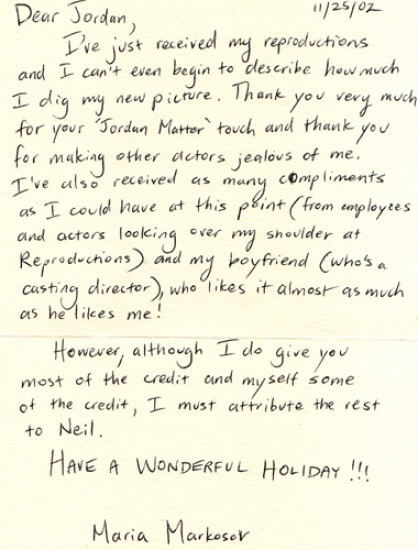 Dear Jordan, 11/25/02
I've just received my reproductions
and I can't even begin to describe how much
I dig my new picture. Thank you very much
for your "Jordan Matter" touch and thank you
for making other actors jealous of me.
I've also received as many compliments
as I could have at this point (from employees
and actors looking over my shoulder at
Reproductions) and my boyfriend (who's a
casting director), who likes it almost as much
as he likes me!
However, although I do give you
most of the credit and myself some
of the credit, I must attribute the rest
to Neil.
HAVE A WONDERFUL HOLIDAY!!!
Maria Markosov